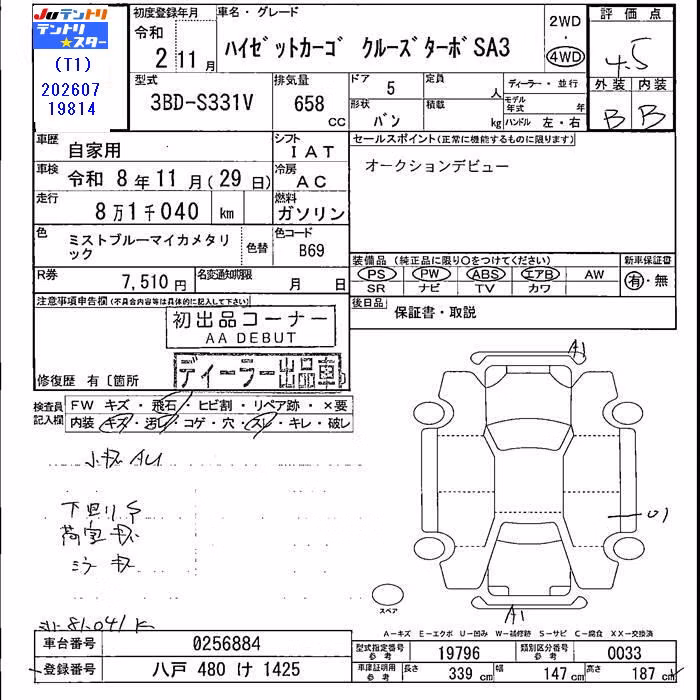 Juテントリ
テントリ
★スター
(T1)
202607
19814
初度登録年月
令和
2 11 月
車名・グレード
ハイゼットカーゴ クルーズターボSA3
2WD
・
4WD
評価点
4.5
外装 内装
B B
型式
3BD-S331V
排気量
658
cc
ドア
5
形状
バン
定員
人
積載
kg
ディーラー・並行
モデル年式 年
ハンドル 左・右
車歴
自家用
シフト
IAT
車検
令和 8年11月(29日)
冷房
AC
走行
8万1千040 km
燃料
ガソリン
色
ミストブルーマイカメタリ
ック
色替
色コード
B69
R券
7,510円
名変通知期限
月 日
セールスポイント(正常に機能するものに限ります)
オークションデビュー
装備品(純正品に限り〇をつけてください)
新車保証書
PS PW ABS エアB AW
有・無
SR ナビ TV カワ
後日品
保証書・取説
注意事項申告欄(不具合内容等は具体的に記入して下さい)
初出品コーナー
AA DEBUT
ディーラー出品車
修復歴 有〔箇所
検査員
記入欄
FW キズ・飛石・ヒビ割・リペア跡・×要
内装・キズ・汚レ・コゲ・穴・スレ・キレ・破レ
小キズ AU
下回り S
荷室 キズ
ミラー キズ
81,041 K
A1
U1
A1
スペア
A－キズ E－エクボ U－凹み W－補修跡 S－サビ C－腐食 XX－交換済
車台番号
0256884
登録番号
八戸 480 け 1425
型式指定番号
参考
19796
類別区分番号
参考
0033
車庫証明用
参考
長さ 339 cm 幅 147 cm 高さ 187 cm